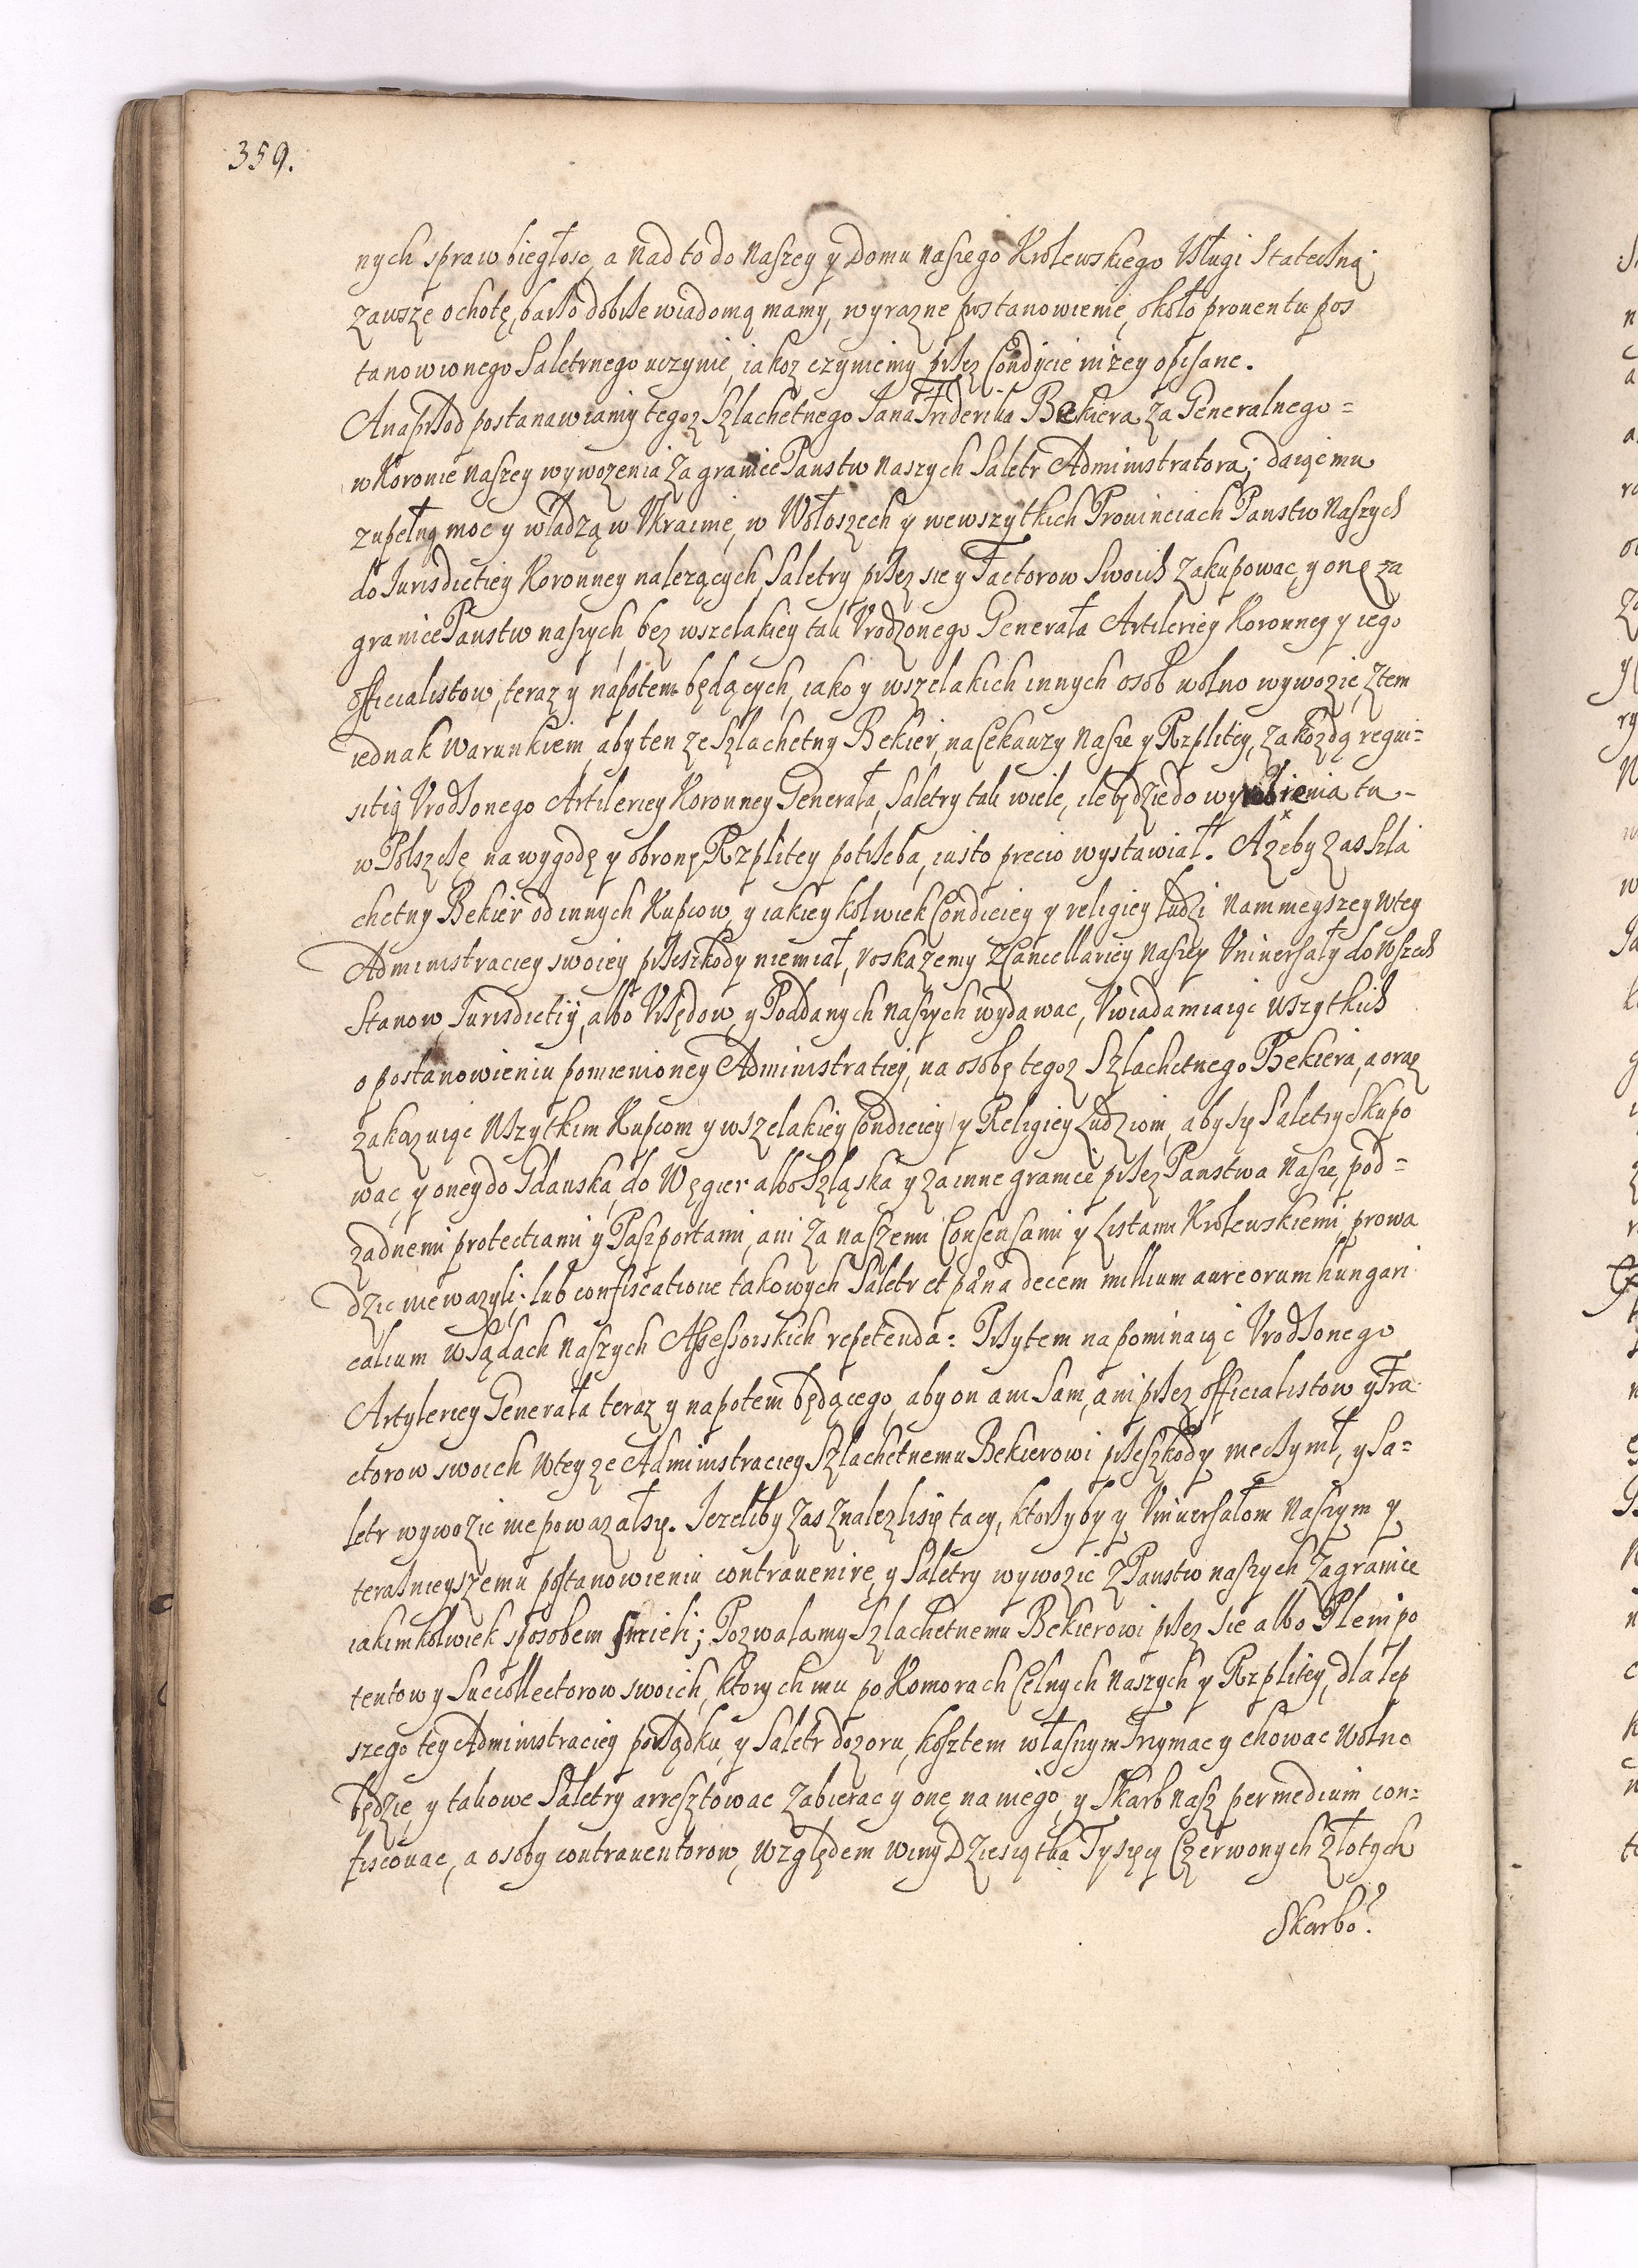 359.
nych spraw biegłosc, a nad to do naszey y Domu naszego Krolewskiego Usługi Stateczną
zawsze ochotę, barzo dobrze wiadomą mamy, wyrazne postanowienie, około prouentu pos
tanowionego Saletrnego uczynic, iakoz czyniemy przez Condycie nizey opisane.
A naprzod postanawiamy tegoz Szlachetnego Jana Friderika Bekiera za Generalnego=
w Koronie naszey wywozenia za granice Panstw naszych Saletr Administratora; daiąc mu
zupełną moc y władzą w Ukrainie, w Wołoszech y wewszytkich Prouinciach Panstw naszych
do Jurisdictiey Koronney nalezących, Saletry przez sie y Factorow Swoich zakupowac, y onę za
granice Panstw naszych, bez wszelakiey tak Urodzonego Generała Artileriey Koronney y iego
officialistow, teraz y napotem będących, iako y wszelakich innych osob wolno wywozic, z tem
iednak warunkiem, aby ten ze Szlachetny Bekier, na Cekauzy nasze y Rzplitey, za kozdą requi=
sitią Urodzonego Artileriey Koronney Generała, Saletry tak wiele, ile będzie do wyrobienia tu-
w Polszcze, na wygodę y obronę Rzplitey potrzeba, iusto precio wystawiał. Azeby zas Szla
chetny Bekier od innych Kupcow, y iakiey kolwiek Condiciey y religiey ludzi nammeyszey wtey
Administraciey swoiey przeszkody niemiał, roskazemy z Cancellariey naszey Uniuersały do wszech
Stanow, Jurisdictiy, albo Urzędow, y Poddanych naszych wydawac, Uwiadamiaiąc wszytkich
o postanowieniu pomienioney Administratiey, na osobę tegoz Szlachetnego Bekiera, a oraz
zakazuiąc wszytkim Kupcom y wszelakiey Condiciey y Religiey Ludziom, aby się Saletry skupo
wac, y oney do Gdanska, do Węgier albo Szląska y za inne granice przez Panstwa nasze, pod=
zadnemi protectiami y Paszportami, ani za naszemi Consensami y Listami Krolewskiemi, prowa
dzic niewazyli; sub confiscatione takowych Saletr et pæna decem millium aureorum hungari
calium w Sądach naszych Assessorskich repetenda: Przytem napominaiąc Urodzonego
Artyleriey Generała teraz y napotem będącego, aby on ani sam, ani przez officialistow y Fra
ctorow swoich w teyze Administraciey Szlachetnemu Bekierowi przeszkody nieczynił, y Sa=
letr wywozic niepowazałsię. Jezeliby zas znalezlisię tacy, ktorzyby y Uniuersałom naszym y
terazniejszemu postanowieniu contrauenire, y Saletry wywozic z Panstw naszych za granice
iakimkolwiek sposobem smieli; Pozwalamy Szlachetnemu Bekierowi przez sie albo Plenipo
tentow y Succollectorow swoich, ktorych mu po Komorach Celnych naszych y Rzplitey, dla lep
szego tey Administraciey porządku, y Saletr dozoru, kosztem własnym Trzymac y chowac wolno
będzie, y takowe Saletry arresztowac zabierac y onę na niego, y Skarb nasz per medium con=
fiscouac, a osoby contrauentorow, względem winy Dziesiątka Tysięcy Czerwonych złotych
Skarbo?